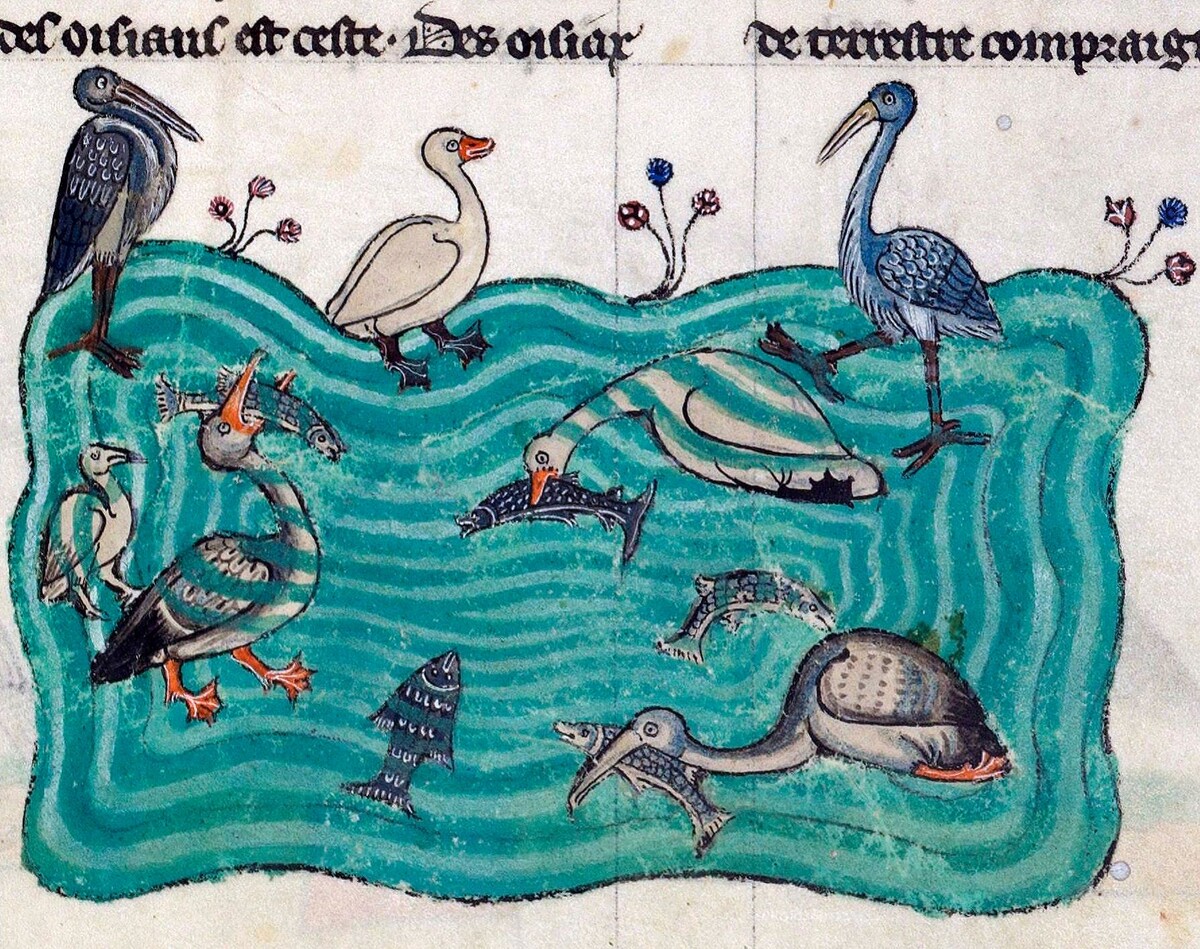 des oisiaus est ceste. Des oisiax de terrestre compraig